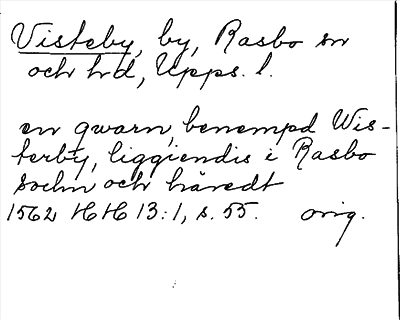 Visteby, by, Rasbo sn
och hd, Upps. l.
en qwarn, benempd Wis-
terby, liggiendis i Rasbo
sochn och häredt
1562 HH 13:1, s. 55. orig.